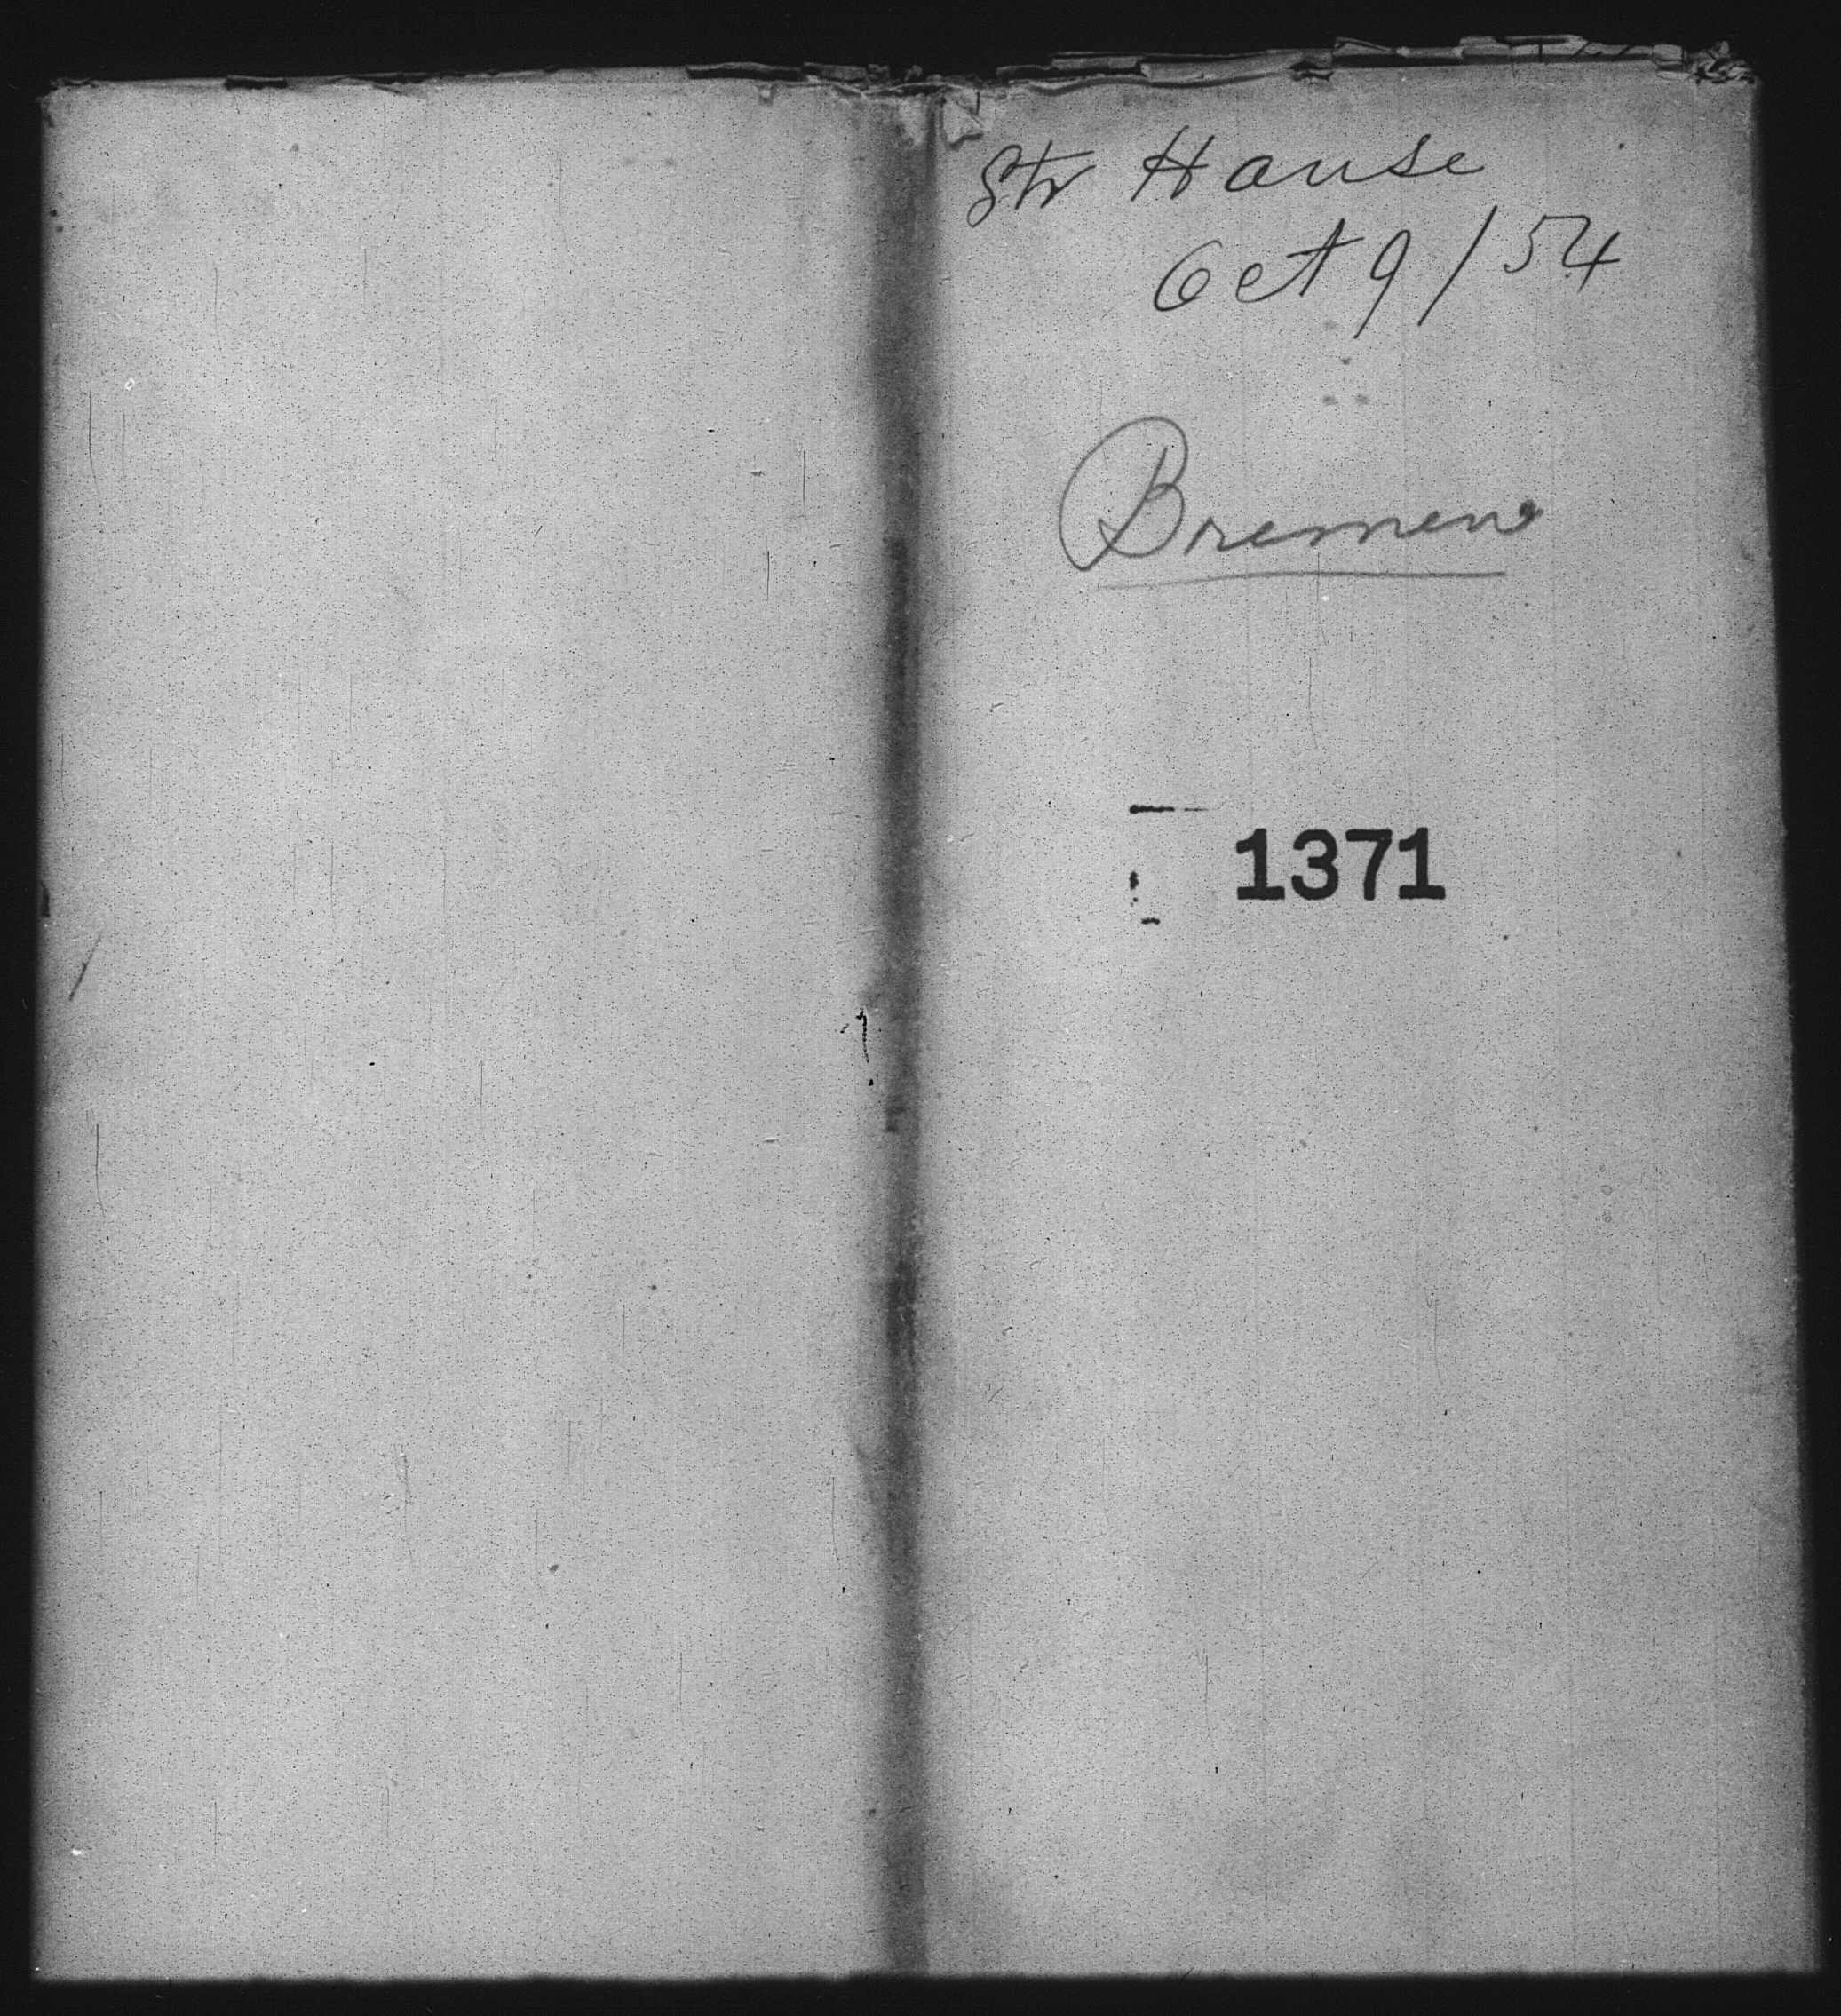 Str Hanse
Oct 9/54
Bremen
1371